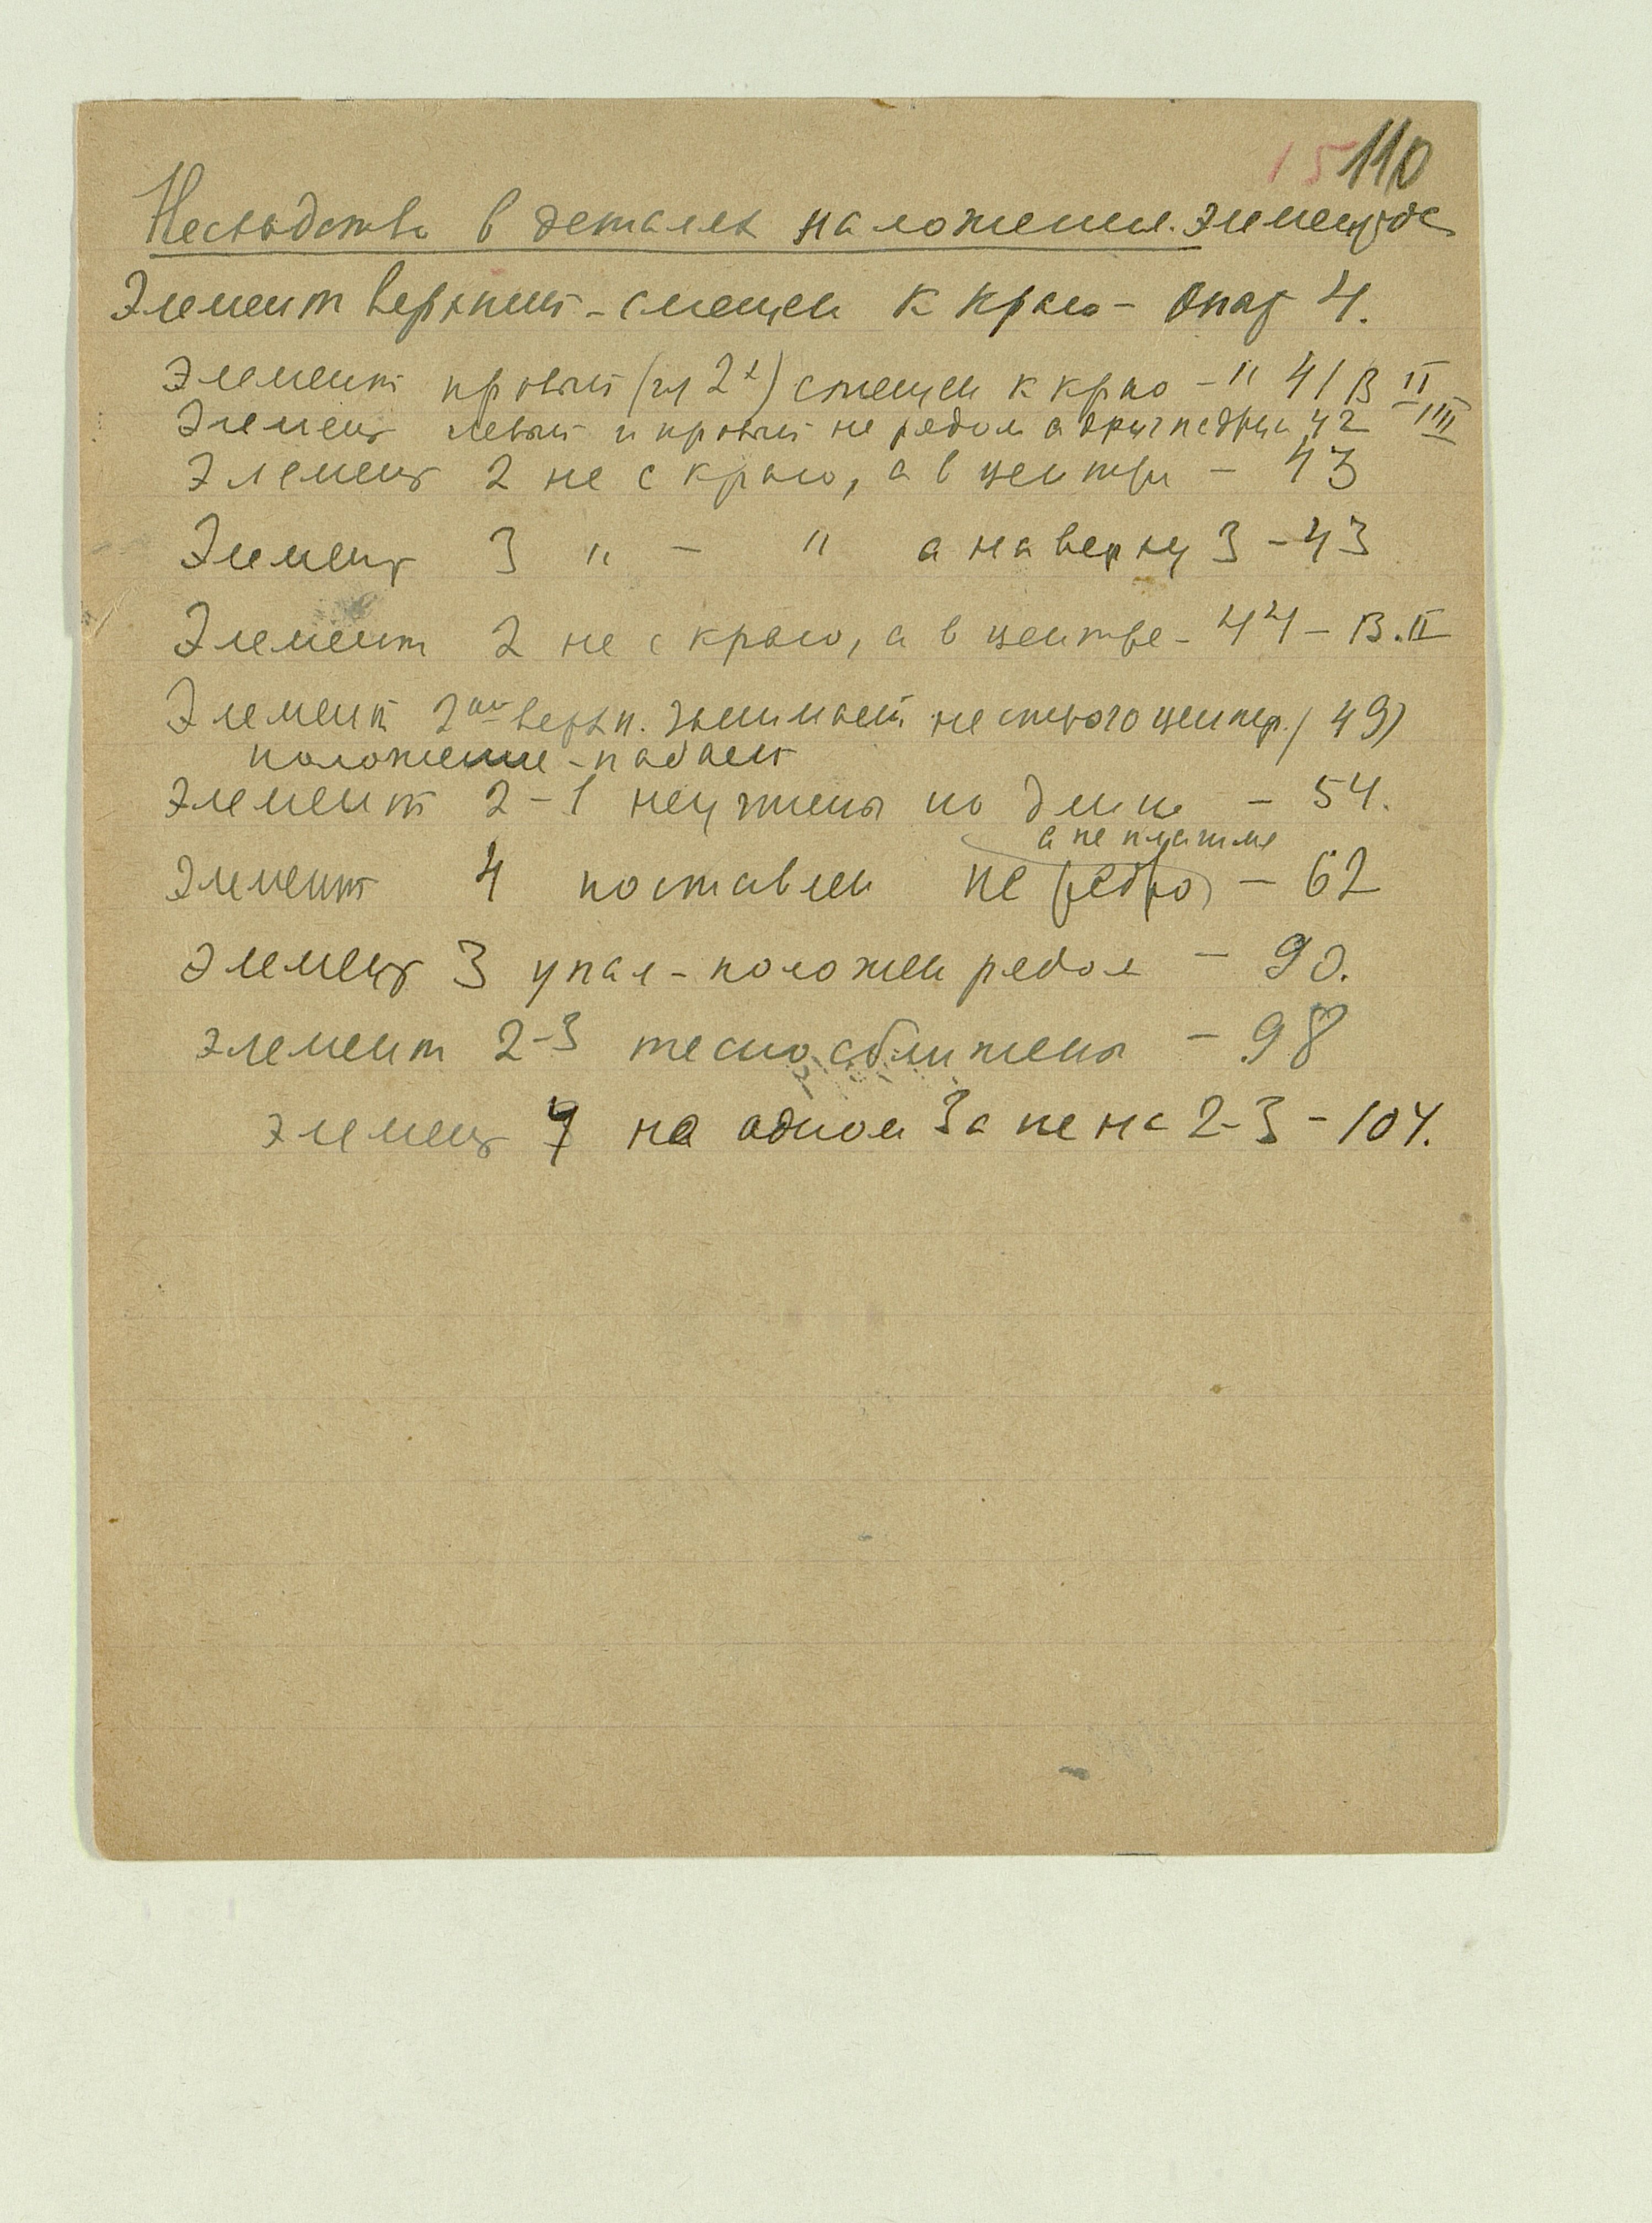 15 110
Несходство в деталях наложения элементов
Элемент верхний - смещен к краю - опыт 4.
Элемент правый (из 2х) смещен к краю - " 41 В II
Элемент левый и правый не рядом а друг на друге 42 III
Элемент 2 не с краю, а в центре - 43
Элемент 3 " - " а наверху 3 - 43
Элемент 2 не с краю, а в центре - 44 - В. II
Элемент 2ой верхн. занимает не строго центр. / 49)
положение - падает
Элемент 2-1 не по длине - 54.
а не плашмя
Элемент 4 поставлен на ребро - 62
Элемент 3 упал - положен рядом - 90.
элемент 2-3 тесно сближены - 98
элемент 4 на одном 3 а не на 2-3 - 104.